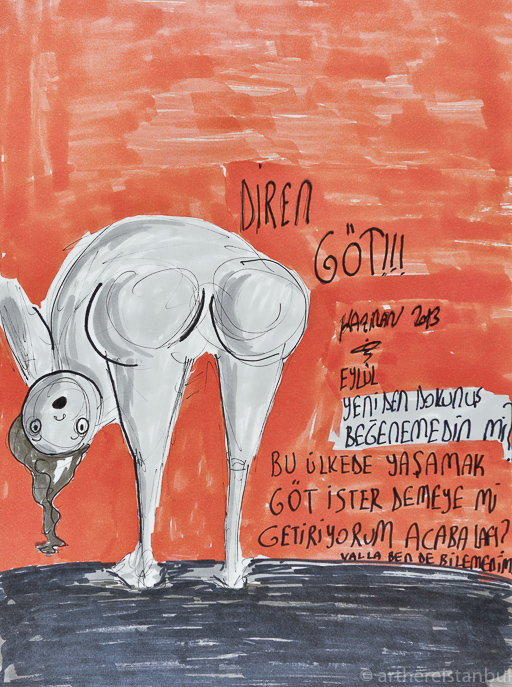 DİREN
GÖT!!!
HAZİRAN 2013
EYLÜL
YENİDEN DOKUNUŞ
BEĞENEMEDİN Mİ?
BU ÜLKEDE YAŞAMAK
GÖT İSTER DEMEYE Mİ
GETİRİYORUM ACABA LAFI?
VALLA BEN DE BİLEMEDİM
© arthereistanbul